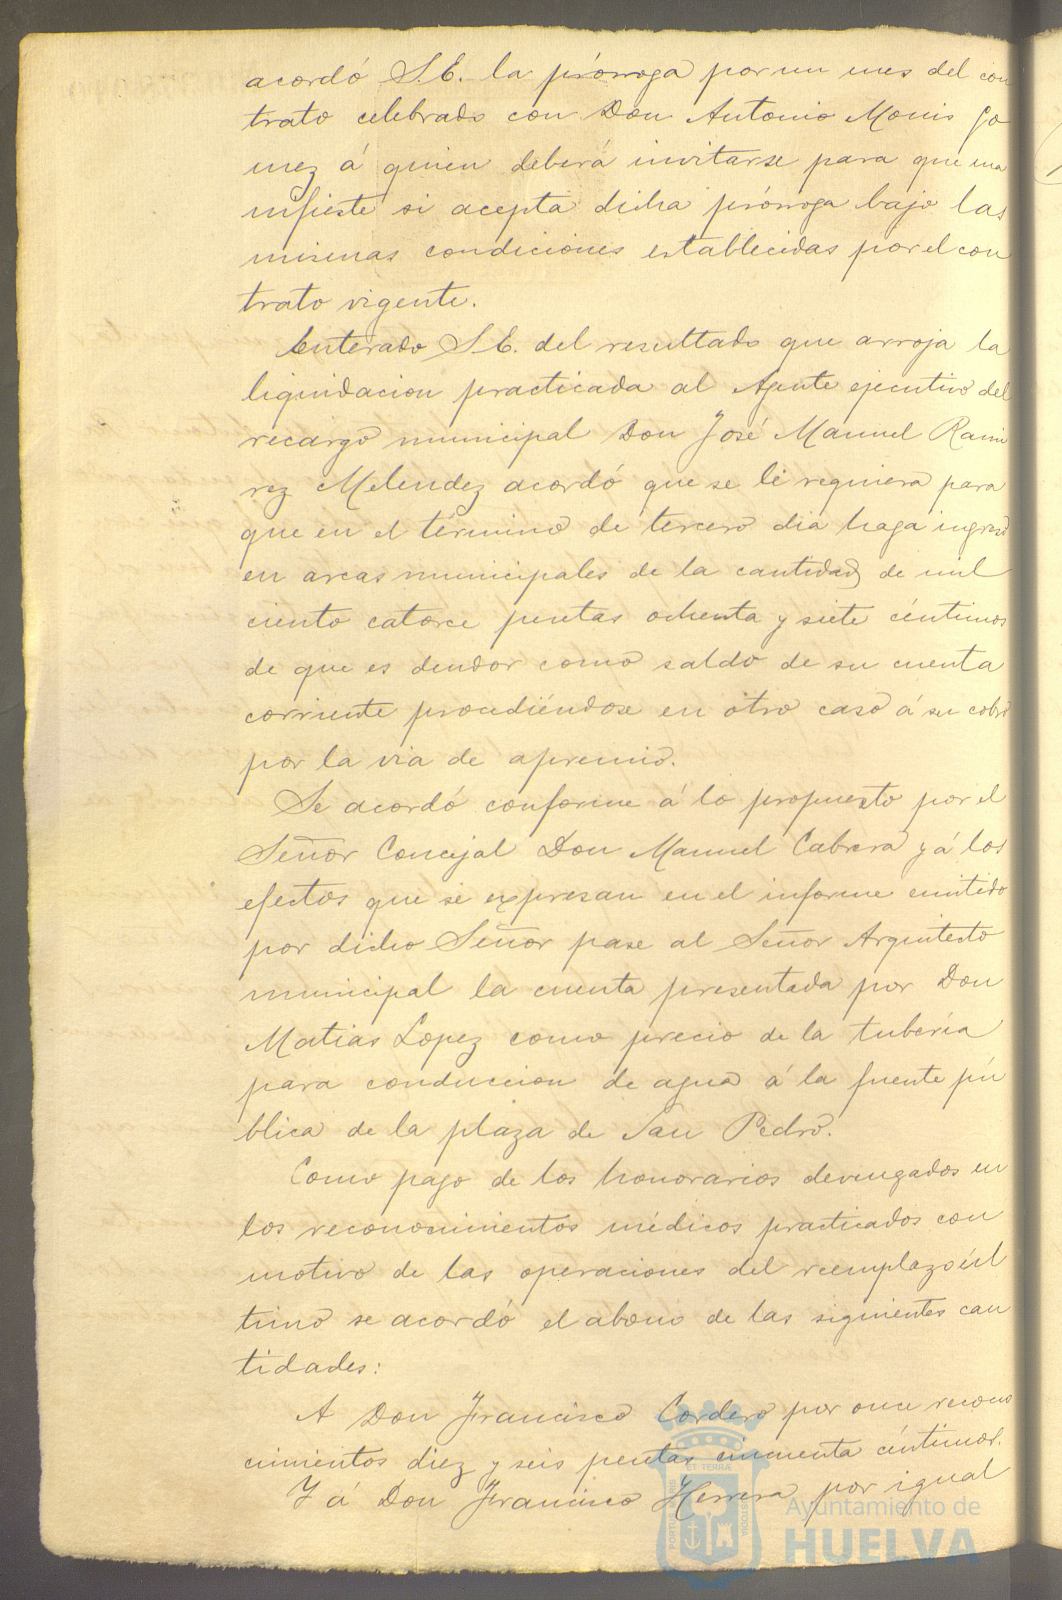 acordó S.E. la prórroga por un mes del con
trato celebrado con Don Antonio Monis Go
mez á quien deberá invitarse para que ma
nifieste si acepta dicha prórroga bajo las
mismas condiciones establecidas por el con
trato vigente.
Enterado S.E. del resultado que arroja la
liquidacion practicada al Agente ejecutivo del
recargo municipal Don José Manuel Rami
rez Melendez acordó que se le requiera para
que en el término de tercero dia haga ingreso
en arcas municipales de la cantidad de mil
ciento catorce pesetas ochenta y siete céntimos
de que es deudor como saldo de su cuenta
corriente procediéndose en otro caso á su cobro
por la via de apremio.
Se acordó conforme á lo propuesto por el
Señor Concejal Don Manuel Cabrera y á los
efectos que se expresan en el informe emitido
por dicho Señor pase al Señor Arquitecto
municipal la cuenta presentada por Don
Matias Lopez como precio de la tuberia
para conduccion de agua á la fuente pú
blica de la plaza de San Pedro.
Como pago de los honorarios devengados en
los reconocimientos médicos practicados con
motivo de las operaciones del reemplazo úl
timo se acordó el abono de las siguientes can
tidades:
A Don Francisco Cordero por once recono
cimientos diez y seis pesetas cincuenta céntimos.
Y á Don Francisco Herrera por igual
Ayuntamiento de
HUELVA